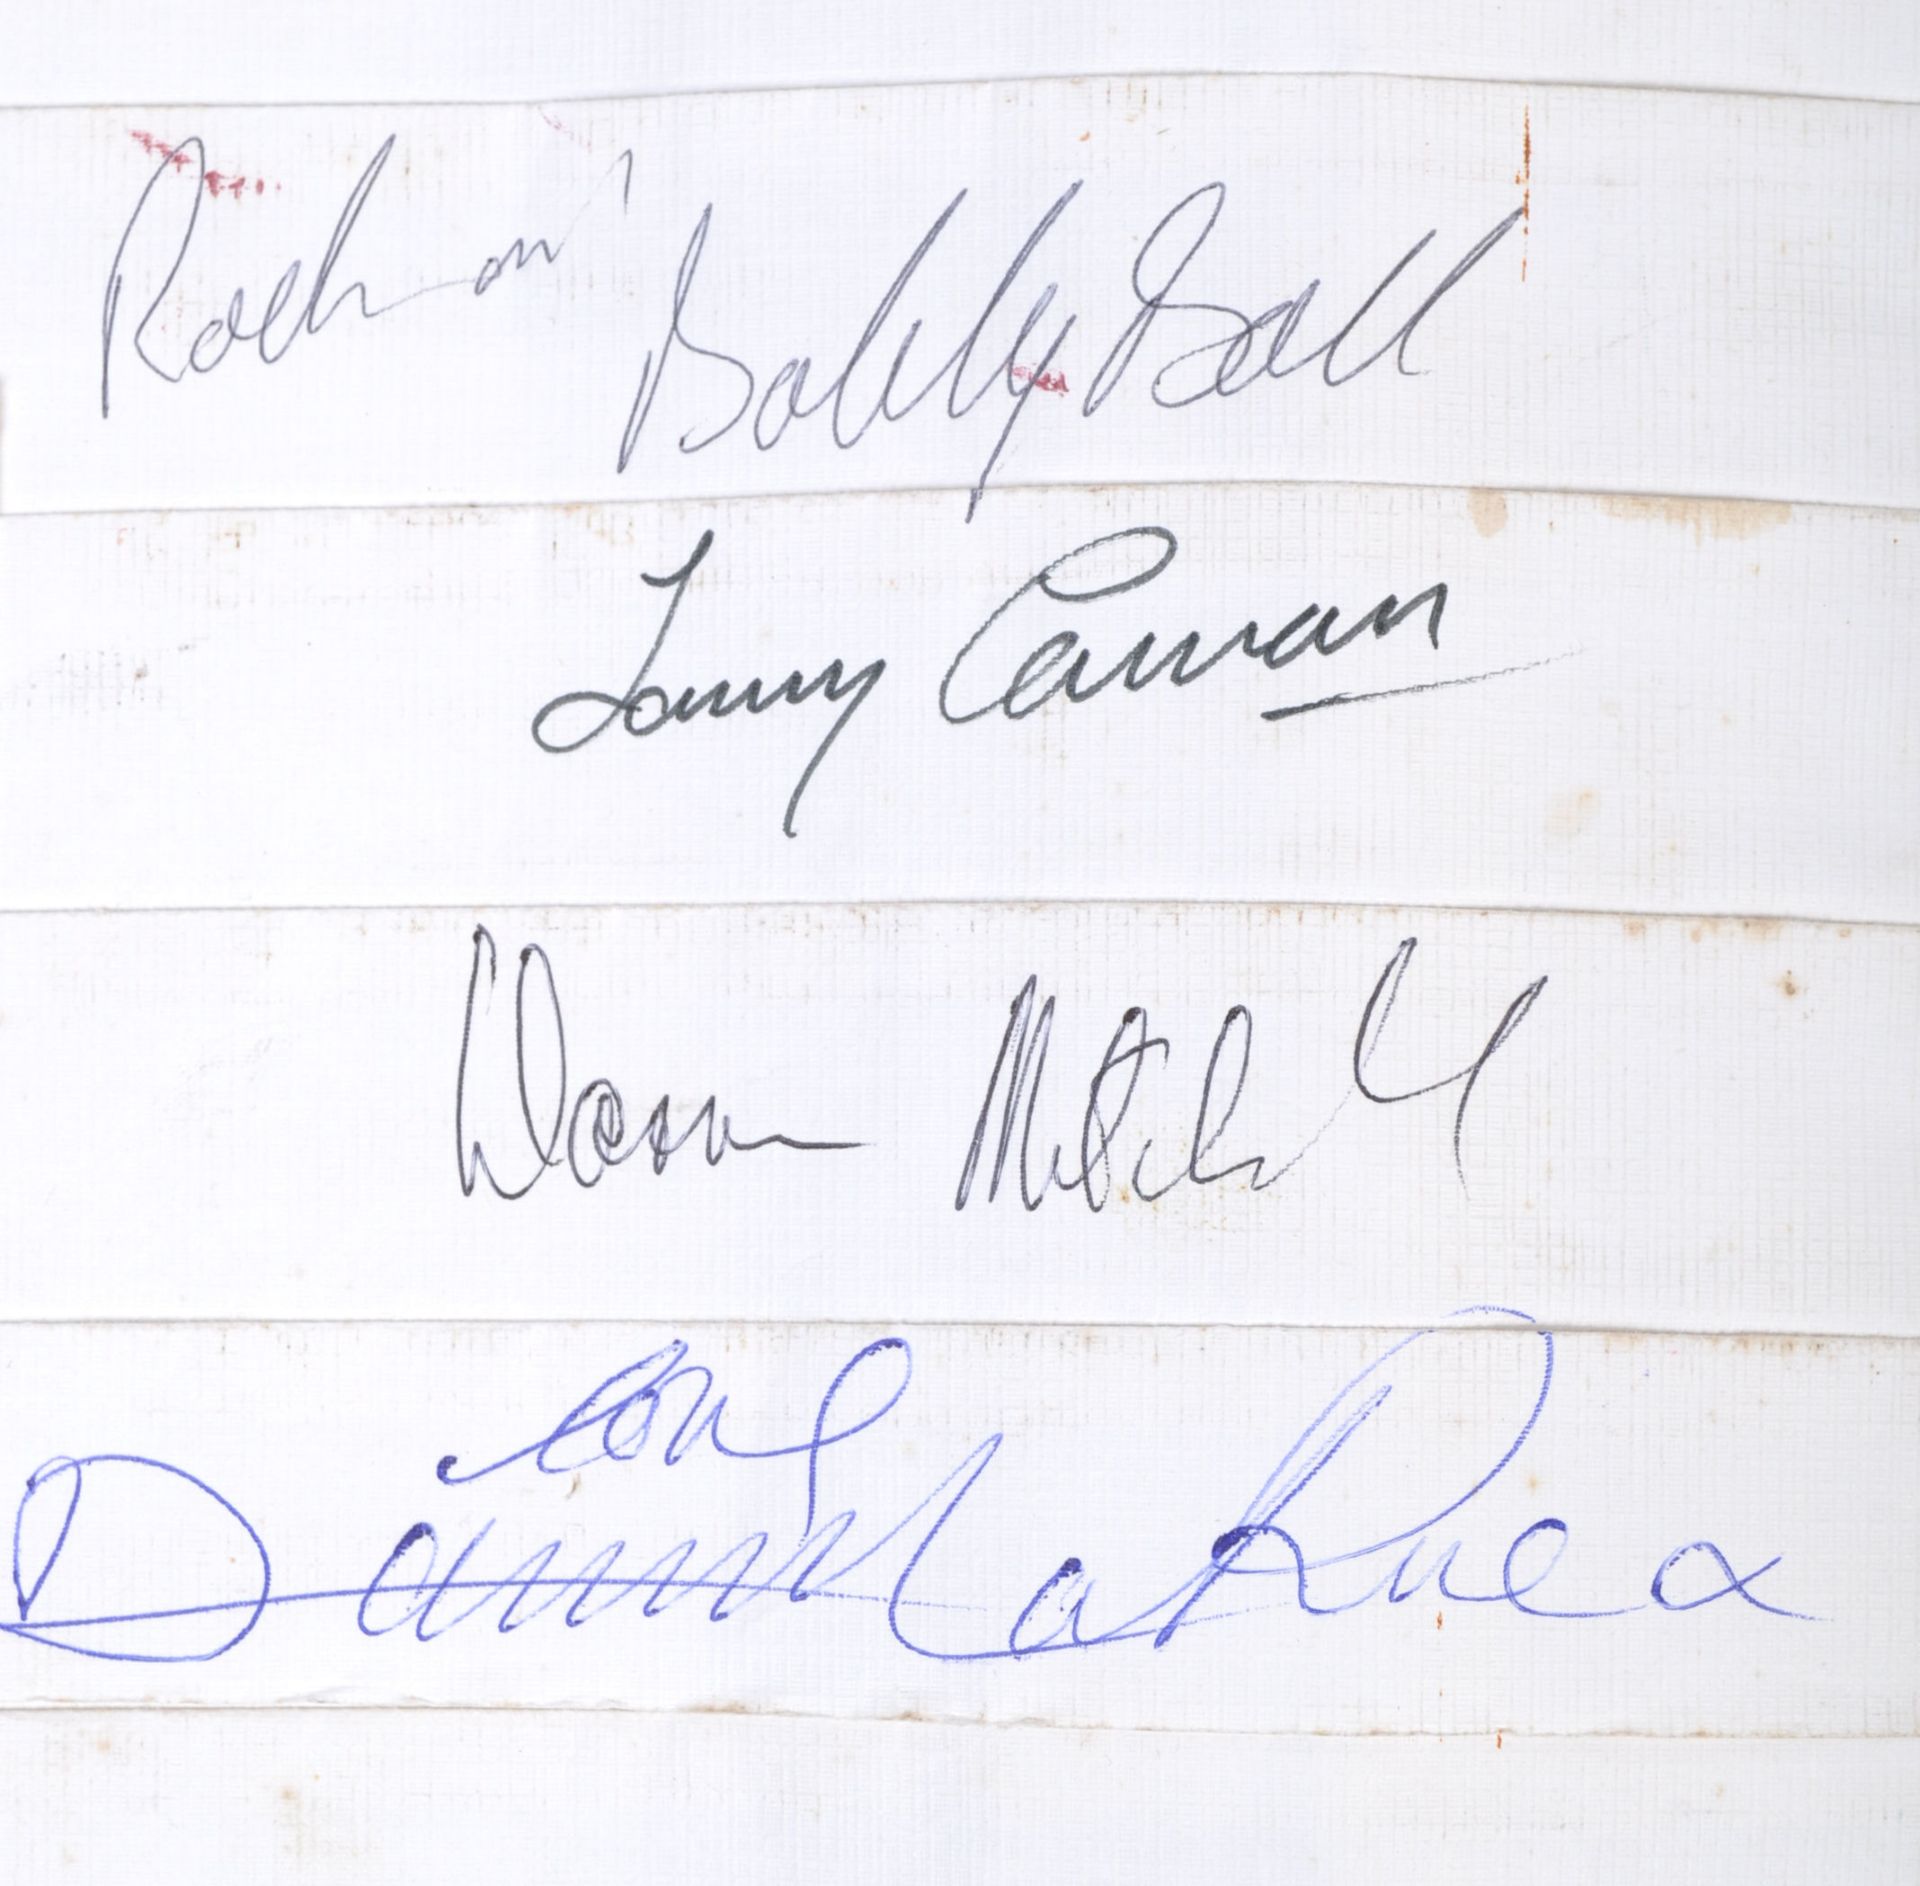 Rock on! Bobby Ball
Tommy Cannon
Warren Mitchell
Love
Danny La Rue x